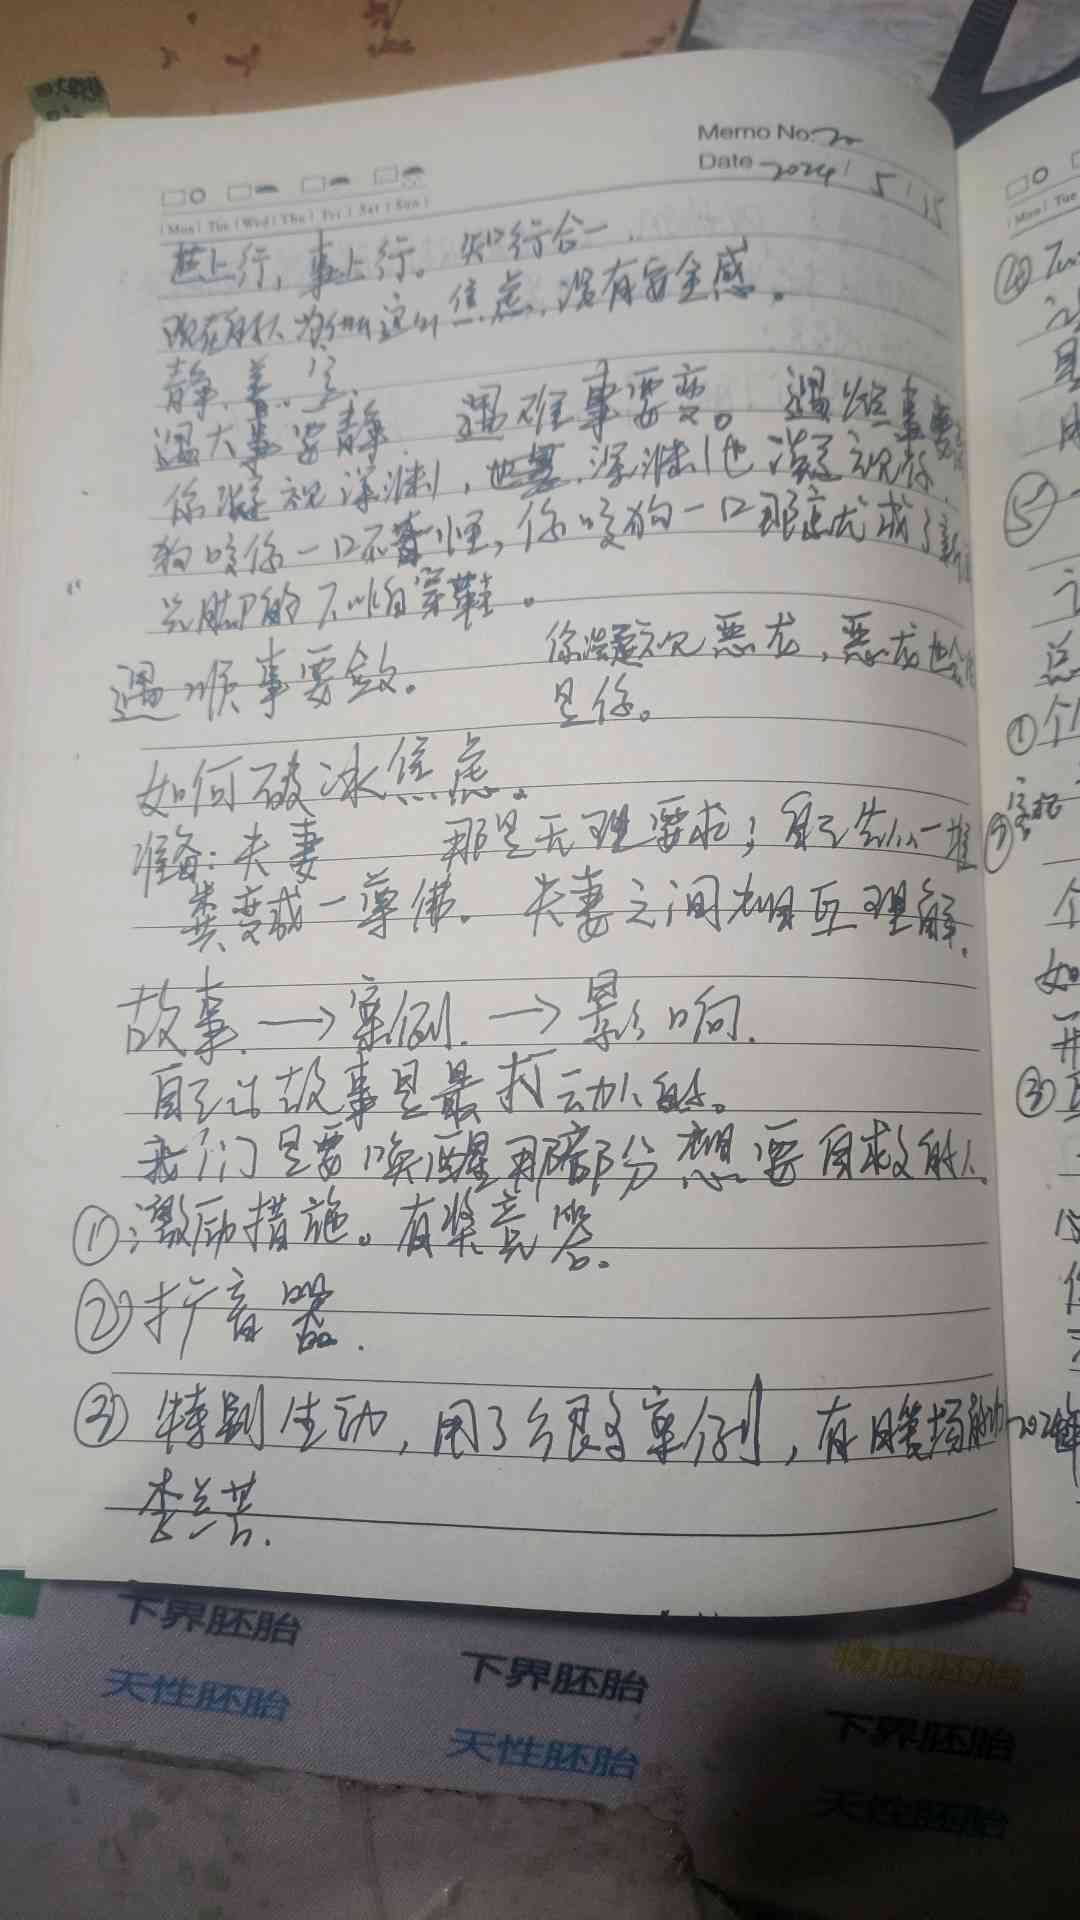 Memo No.
Date 2024 / 5 / 15
Mon Tue Wed Thu Fri Sat Sun
世上行，事上行。知行合一
现在的人为什么这么焦虑，没有安全感。
静、善、
遇大事要静 遇难事要变。 遇 事要
你凝视深渊，深渊也凝视你
狗咬你一口不奇怪，你咬狗一口那就成了新
光脚的不怕穿鞋。
遇顺事要敛。 你凝视恶龙，恶龙也
是你。
如何破冰焦虑。
准备：夫妻 那是无理要求；自己 一堆
粪变成一尊佛。 夫妻之间相互理解.
故事. → 案例. → 影响.
自己的故事是最打动人的。
我们是要唤醒那部分想要自救的人.
①激励措施。有奖竞答。
②扩音器.
③特别生动，用了很多案例，有
李兰芸.
④
⑤
①个
②
个
如
③
下界胚胎
天性胚胎
下界胚胎
天性胚胎
下界胚胎
天性胚胎